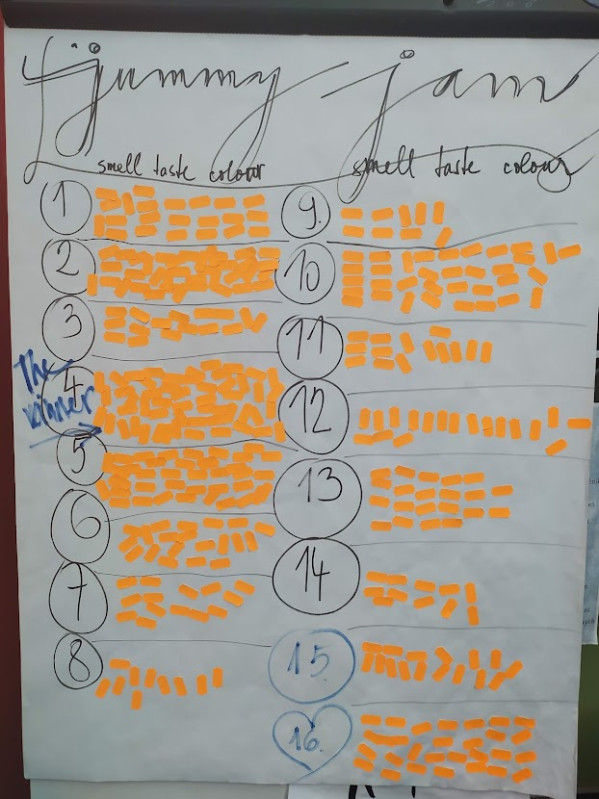 jummy jam
smell taste colour
smell taste colour
1
2
3
The
4
winner
5
6
7
8
9.
10
11
12
13
14
15.
16.